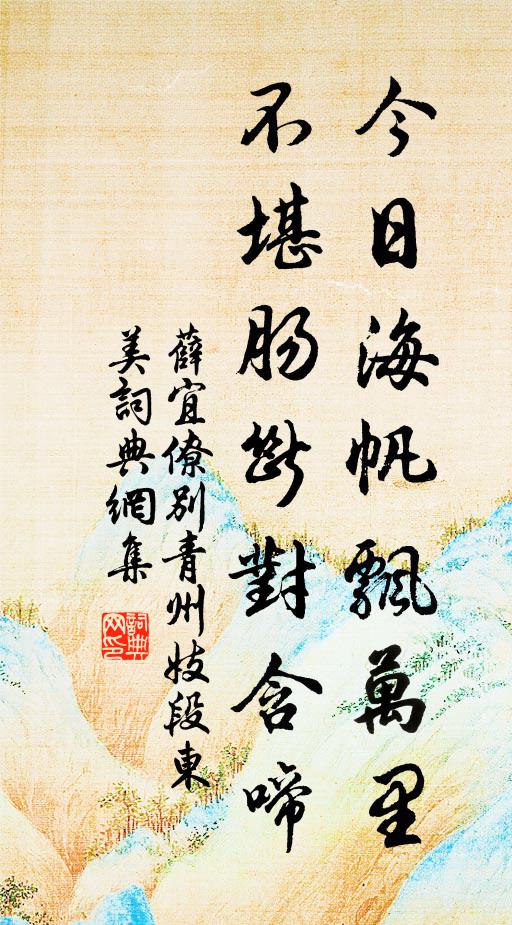 今日海帆飄萬里
不堪肠斷對含啼
薛宜僚别青州妓段東
美詞典網集
詞典
网印